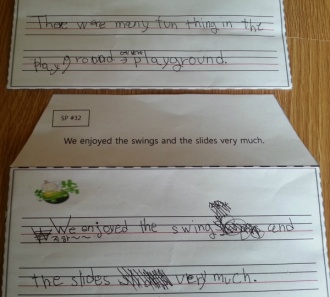 There were many fun thing in the
playground.
SP #12
We enjoyed the swings and the slides very much.
We enjoyed the swing and
the slides very much.